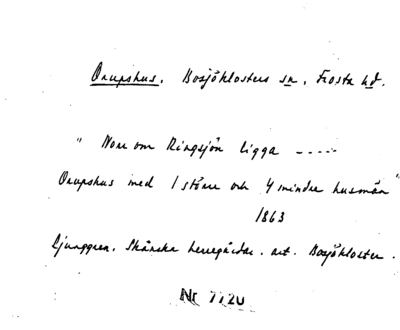 Orupshus. Bosjöklosters sn. Frosta hd.
"Norr om Ringsjön ligga -----
Orupshus med 1 större och 4 mindre husmän"
1863
Ljunggren. Skånska herregårdar. art. Bosjökloster.
Nr 7720